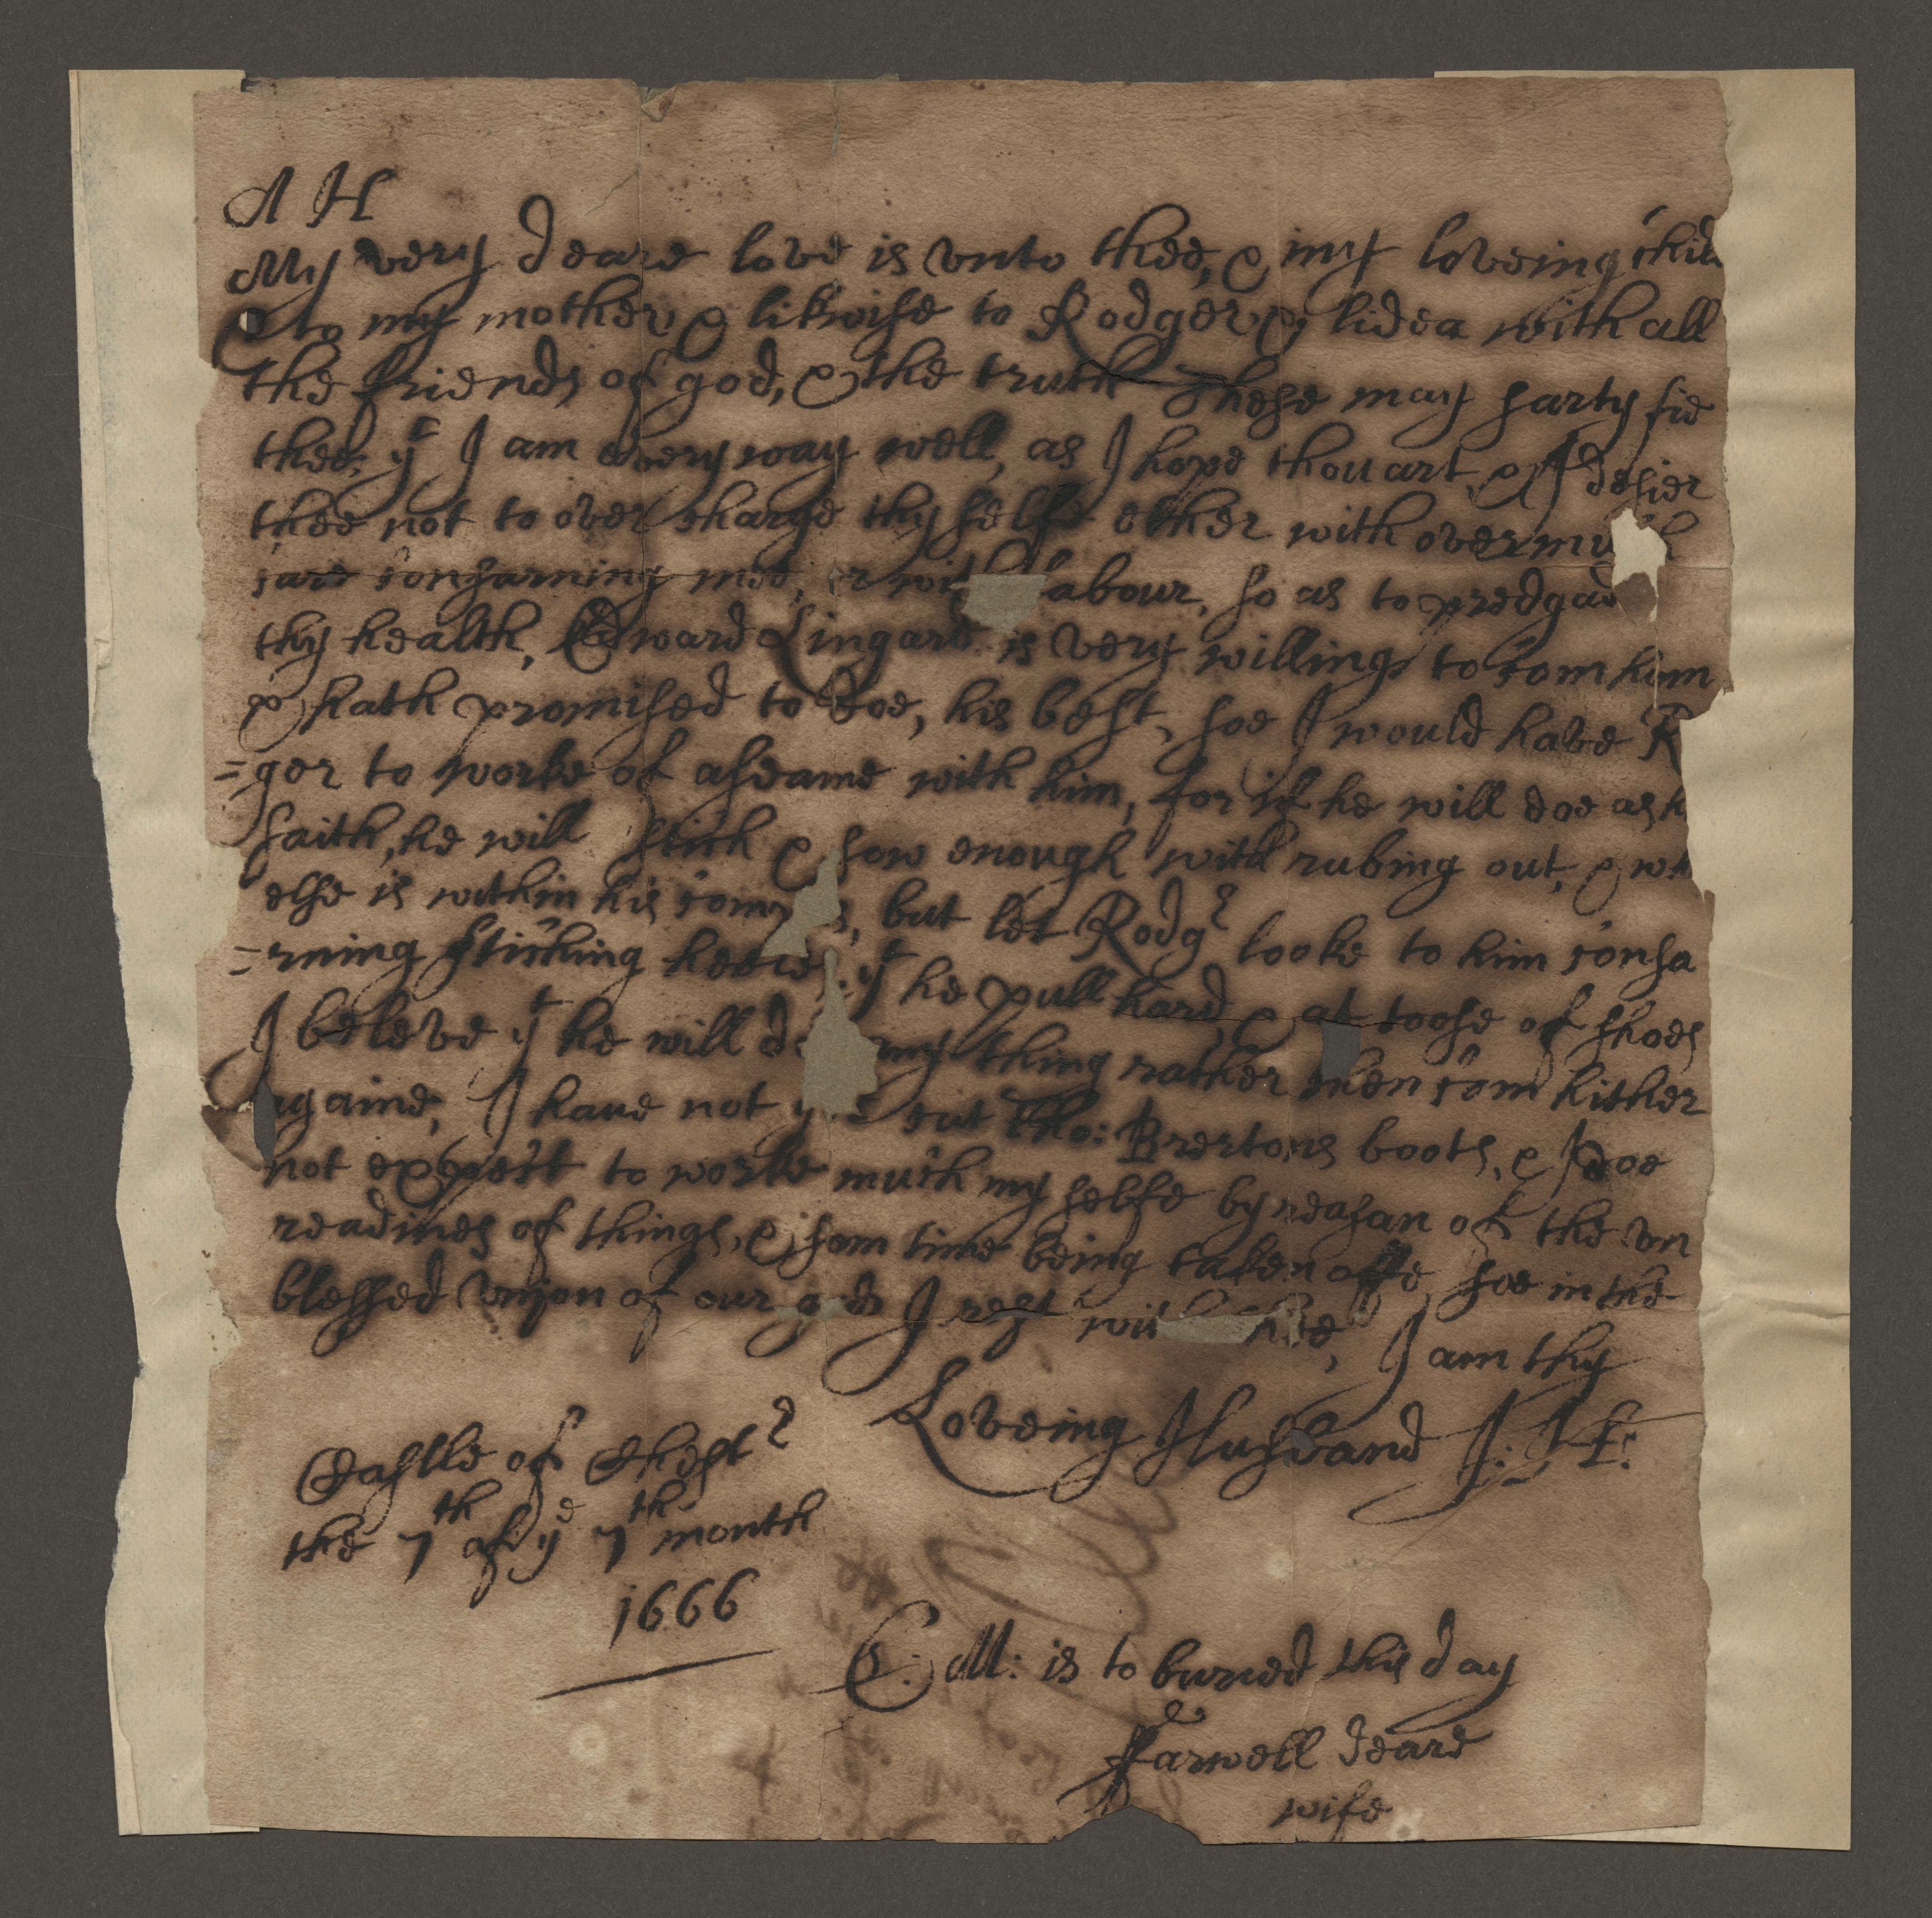 A H
My very deare love is vnto thee, & my loveing child
& to my mother & likwise to Rodger & lidea with all
the friends of god, & the truth These may sarty fie
thee, yt I am every way well, as I hope thou art, & I desier
thee not to over charge thy selfe ether with over mu
care consarning mee, or with labour, so as to predgad
thy health, Edward Lingard is very willing to com hom
& hath promised to doe, his best, soe I would have R
=ger to worke of aseame with him, for if he will doe as h
saith, he will stich & sow enough with rubing out, & wh
else is within his comp s, but let Rodgr looke to him consa
=rning stiching heere, yt he pull hard, & at toose of shoes
I beleve yt he will d any thing rather then com hither
againe, I have not y cut Tho: Brertons boots, & I doe
not expect to worke much my selfe by reason of the vn
readines of things, & som time being taken offe soe in the
blessed vnion of our god I rest with thee, I am thy
Loveing Husband J:
Castle of Chestr
the 7th of ye 7th month
1666
C: M: is to buried this day
Farwell deare
wife